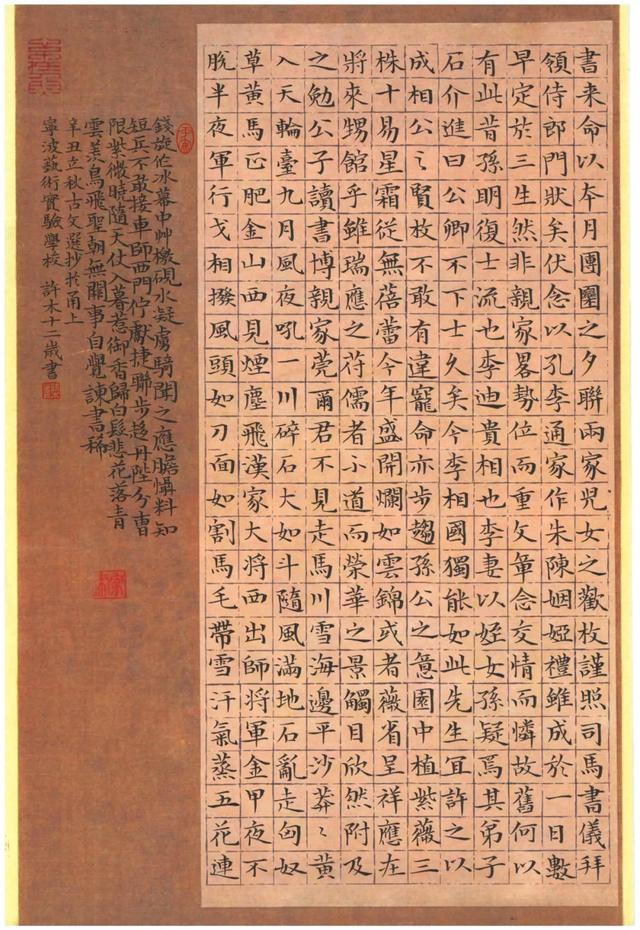 書来命以夲月團圞之夕聯兩家兒女之歡枚謹照司馬書儀拜
領侍郎門狀矣伏念以孔李通家作朱陳姻婭禮雖成於一日數
早定於三生然非親家畧勢位而重文章念交情而憐故舊何以
有此昔孫明復士流也李迪貴相也李妻以姪女孫疑焉其弟子
石介進曰公卿不下士久矣今李相國獨能如此先生宜許之以
成相公〻賢枚不敢有違寵命亦步趨孫公之意園中植紫薇三
株十易星霜從無蓓蕾今年盛開爛如雲錦或者薇省呈祥應在
將來甥館乎雖瑞應之符儒者不道而榮華之景觸目欣然附及
之勉公子讀書博親家莞爾君不見走馬川雪海邊平沙莽〻黄
入天輪臺九月風夜吼一川碎石大如斗隨風滿地石亂走匈奴
草黄馬正肥金山西見煙塵飛漢家大將西出師將軍金甲夜不
脫半夜軍行戈相撥風頭如刀面如割馬毛帶雪汗氣蒸五花連
錢旋作冰幕中艸檄硯水凝虜騎聞之應膽懾料知
短兵不敢接車師西門佇獻捷聯步趍丹陛分曹
限紫微曉隨天仗入暮惹御香歸白髮悲花落青
雲羨鳥飛聖朝無闕事自覺諫書稀
辛丑立秋古文選抄於甬上
寧波藝術實驗學校 許木十二歲書